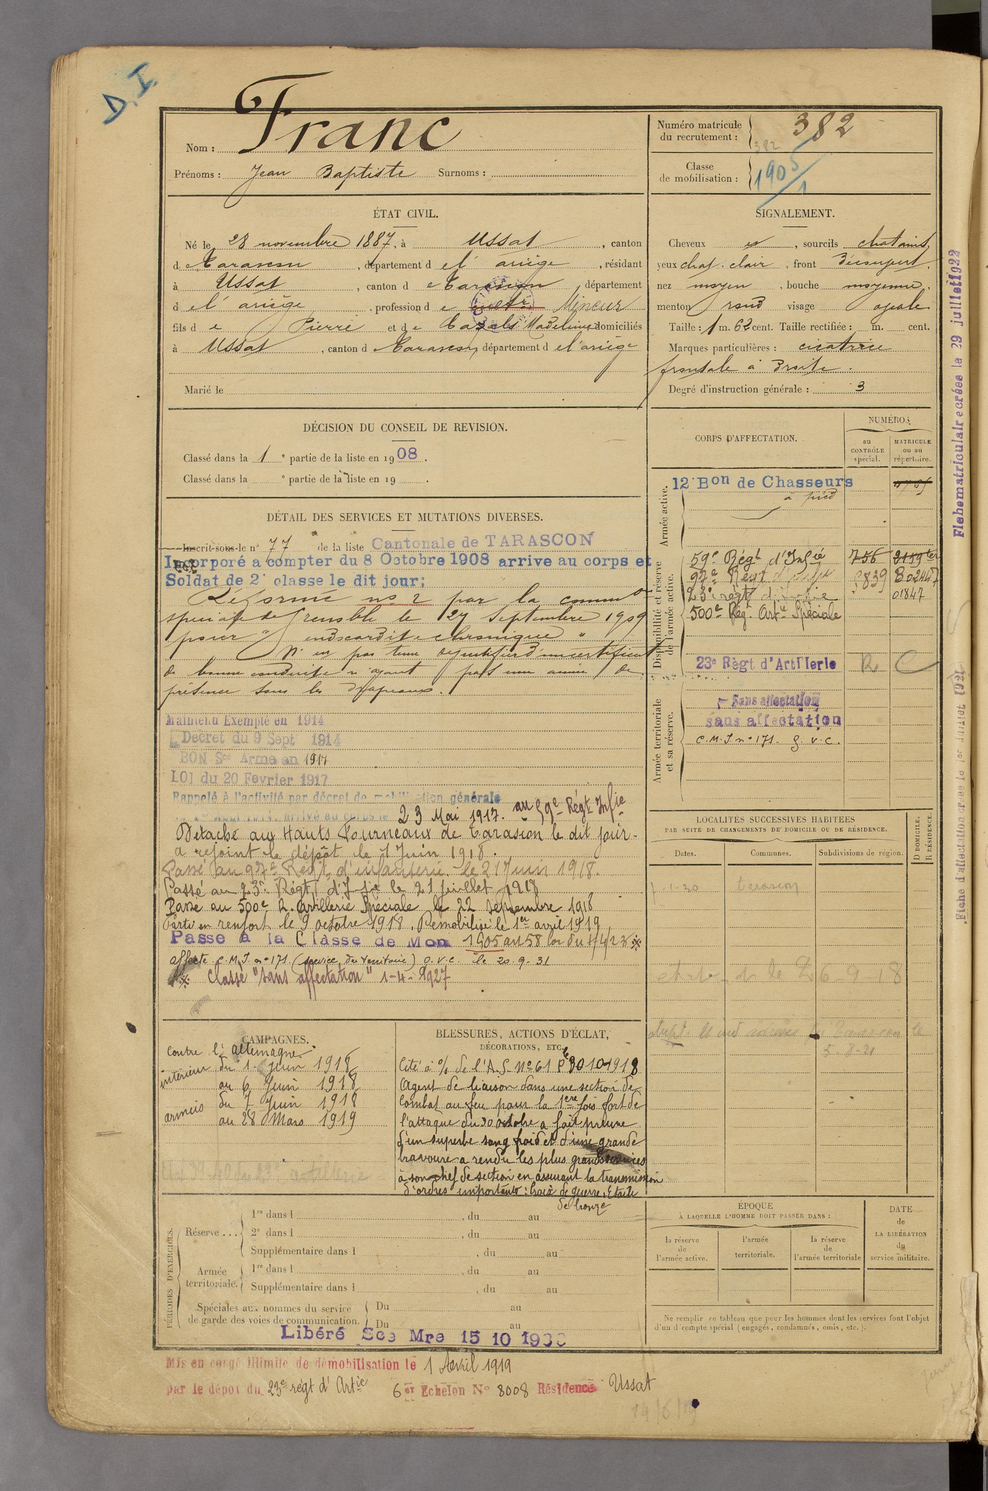 D.I.
Nom : Franc
Prénoms : Jean Baptiste Surnoms :
Numéro matricule du recrutement : 382
382
Classe de mobilisation : 1905/1
ÉTAT CIVIL.
Né le 28 novembre 1887, à Ussat, canton
de Tarascon, département de l'ariège, résidant
à Ussat, canton de Tarascon, département
de l'ariège, profession de Mineur
fils de Pierre et de Cazals Madeleine domiciliés
à Ussat, canton de Tarascon, département de l'ariège
Marié le
SIGNALEMENT.
Cheveux et, sourcils chatains,
yeux chat. clair, front découvert,
nez moyen, bouche moyenne,
menton rond visage ovale
Taille : 1 m. 62 cent. Taille rectifiée : m. cent.
Marques particulières : cicatrice
frontale à droite.
Degré d'instruction générale : 3
DÉCISION DU CONSEIL DE REVISION.
Classé dans la 1e partie de la liste en 1908.
Classé dans la e partie de la liste en 19
DÉTAIL DES SERVICES ET MUTATIONS DIVERSES.
Inscrit sous le n° 77 de la liste Cantonale de TARASCON
Incorporé a compter du 8 Octobre 1908 arrive au corps et
Soldat de 2e classe le dit jour;
Réformé no 2 par la comm on
spéciale de Grenoble le 27 Septembre 1909
pour "endocardite chronique"
N'a pas tenu
de bonne conduite n'ayant pas une année de
présence sous les drapeaux.
Maintenu Exempté en 1914
Décret du 9 Sept 1914
BON Sce Armé en 1917
LOI du 20 Février 1917
Rappelé à l'activité par décret de mobilisation générale
arrivé au corps le 23 Mai 1917. au 59e Régt Infie
Détaché aux Hauts Fourneaux de Tarascon le dit jour.
a rejoint le dépôt le 1 Juin 1918.
Passé au 97e Régt d'infanterie le 21 Juin 1918.
Passé au 23e Régt d'Infie le 21 juillet 1918
Passé au 500e R. Artillerie Spéciale le 22 Septembre 1918
Parti en renfort le 9 octobre 1918. Démobilisé le 1er avril 1919
Passé à la Classe de Mon 1905 art 58 loi du 1/4/23 ※
affecté C.M.I. n° 171 (service du Territoire) G.V.C. le 20.9.31
※ Classé "sans affectation" 1-4-1927
CORPS D'AFFECTATION.
NUMÉROS
au CONTRÔLE spécial.
MATRICULE ou au répertoire.
Armée active.
12e Bon de Chasseurs
à pied
Disponibilité et réserve de l'armée active.
59e Régt d'Infie 756
97e Régt d'Infie
23e régt d'infie 01847
500e Rég. Artie Spéciale
23e Régt d'Artillerie R C
Armée territoriale et sa réserve.
Sans affectation
sans affectation
C.M.I n° 171. G.V.C.
LOCALITÉS SUCCESSIVES HABITÉES
PAR SUITE DE CHANGEMENTS DE DOMICILE OU DE RÉSIDENCE.
Dates. Communes. Subdivisions de région. D DOMICILE. R RÉSIDENCE.
1-1-30 Tarascon
6-9-18
5-8-21
CAMPAGNES.
Contre l'allemagne
intérieur du 1. Juin 1918
au 6 Juin 1918
armées du 7 Juin 1918
au 28 Mars 1919
BLESSURES, ACTIONS D'ÉCLAT,
DÉCORATIONS, ETC.
Cité à l'o/ de l'A.S. N° 61 le 30 10 1918
Agent de liaison dans une section de
combat au feu pour la 1ere fois lors de
l'attaque du 30 octobre a fait preuve
d'un superbe sang froid et d'une grande
bravoure a rendu les plus grands services
à son chef de section en assurant la transmission
d'ordres importants : Croix de guerre, Etoile
de bronze
PÉRIODES D'EXERCICES.
Réserve .... 1re dans l , du au
2e dans l , du au
Supplémentaire dans l , du au
Armée territoriale. 1re dans l , du au
Supplémentaire dans l , du au
Spéciales aux hommes du service de garde des voies de communication. Du au
Du au
Libéré Sce Mre 15 10 1936
ÉPOQUE
À LAQUELLE L'HOMME DOIT PASSER DANS :
la réserve de l'armée active.
l'armée territoriale.
la réserve de l'armée territoriale
DATE de LA LIBÉRATION du service militaire.
Ne remplir ce tableau que pour les hommes dont les services font l'objet
d'un décompte spécial (engagés, condamnés, omis, etc.).
Mis en congé illimité de démobilisation le 1 Avril 1919
par le dépôt du 23e régt d'Artie 6er Echelon N° 8008 Résidence Ussat
14/6/19
Fiche matriculaire créée le 29 juillet 1922
Fiche d'affectation créée le 1er Juillet 192